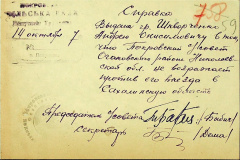 Справка
78
89
14 октября 7
Выдана гр. Шкварченко
Андрею Онисимовичу в том,
что Покровский с/совет
Очаковского района Николаев-
ской обл. не возражает
против его выезда в
Сахалинскую область
Председатель с/совета /Бабич/
Секретарь